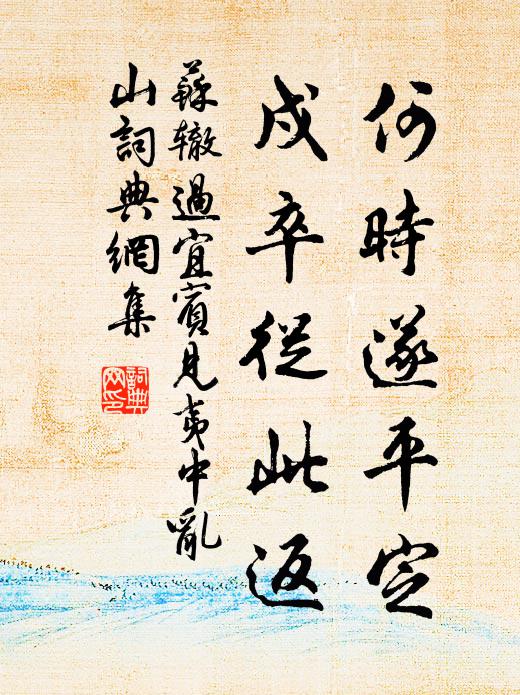 何時遂平定
戍卒從此返
蘇轍過宜賓見夷中亂
山詞典網集
詞典網印